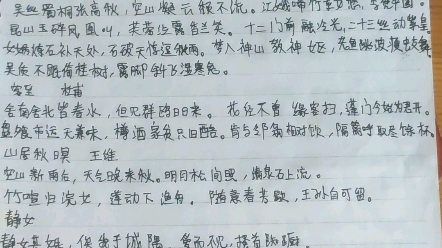 吴丝蜀桐张高秋,空山凝云颓不流。江娥啼竹素女愁,
昆山玉碎凤凰叫,芙蓉泣露香兰笑。十二门前融冷光,二十三丝动紫皇
女娲炼石补天处,石破天惊逗秋雨。梦入神山教神妪,老鱼跳波瘦蛟舞
吴质不眠倚桂树,露脚斜飞湿寒兔。
客至 杜甫
舍南舍北皆春水,但见群鸥日日来。花径不曾缘客扫,蓬门今始为君开。
盘飧市远无兼味,樽酒家贫只旧醅。肯与邻翁相对饮,隔篱呼取尽馀杯。
山居秋暝 王维
空山新雨后,天气晚来秋。明月松间照,清泉石上流。
竹喧归浣女,莲动下渔舟。随意春芳歇,王孙自可留。
静女
静女其姝,俟我于城隅。爱而不见,搔首踟蹰。